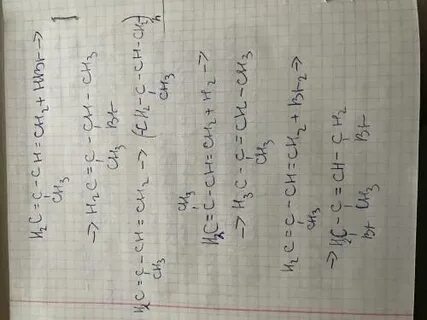 H₂C=C-CH=CH₂+HBr→
CH₃
→H₂C=C-CH-CH₃
CH₃ Br
H₂C=C-CH=CH₂→(CH₂-C-CH-CH₂)n
CH₃ CH₃
CH₃
H₂C=C-CH=CH₂+H₂→
→H₃C-C=CH-CH₃
CH₃
H₂C=C-CH=CH₂+Br₂→
CH₃
→H₂C-C=CH-CH₂
Br CH₃ Br